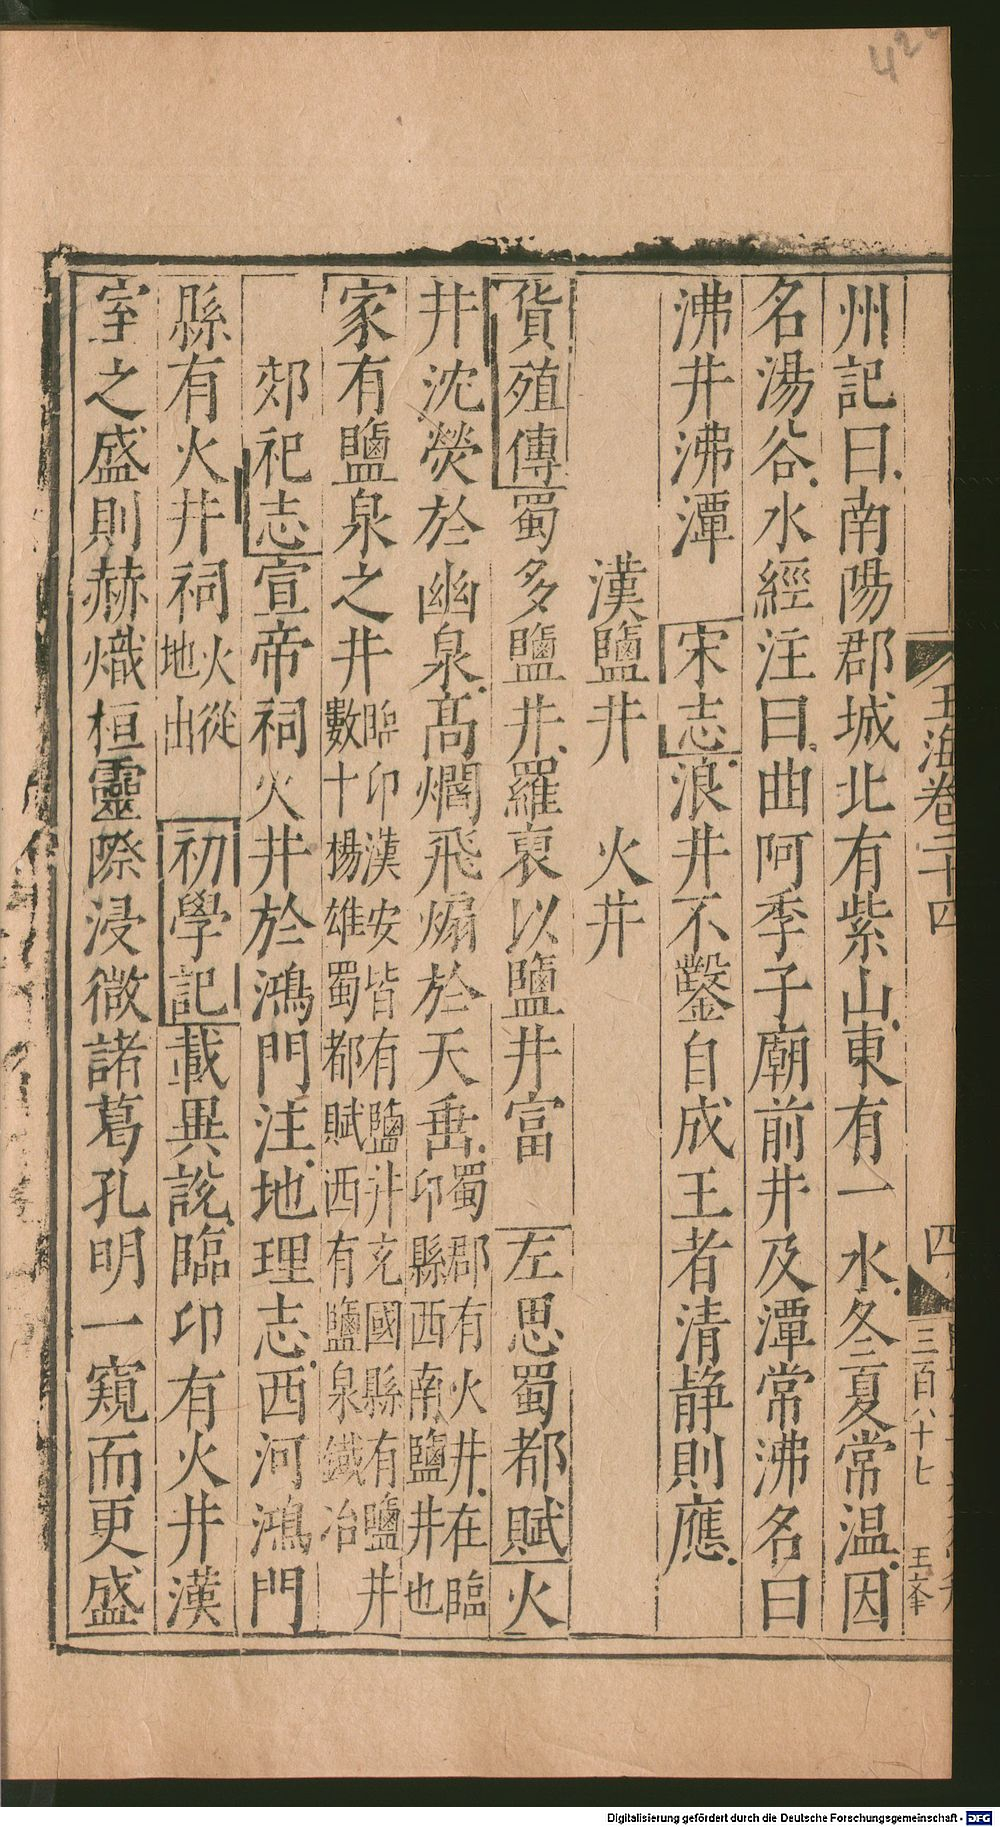 玉海卷二十四
四
三百八十七
王夆
州記曰南陽郡城北有紫山東有一水冬夏常温因
名湯谷水經注曰曲阿季子廟前井及潭常沸名曰
沸井沸潭 宋志浪井不鑿自成王者清静則應
漢鹽井 火井
貨殖傳蜀多鹽井羅裒以鹽井富 左思蜀都賦火
井沈熒於幽泉高爓飛煽於天垂蜀郡有火井在臨
卭縣西南鹽井也
家有鹽泉之井臨卭漢安皆有鹽井充國縣有鹽井
數十楊雄蜀都賦西有鹽泉鐵冶
郊祀志宣帝祠火井於鴻門注地理志西河鴻門
縣有火井祠火從
地出
初學記載異說臨卭有火井漢
室之盛則赫熾桓靈際浸微諸葛孔明一窺而更盛
Digitalisierung gefördert durch die Deutsche Forschungsgemeinschaft - DFG